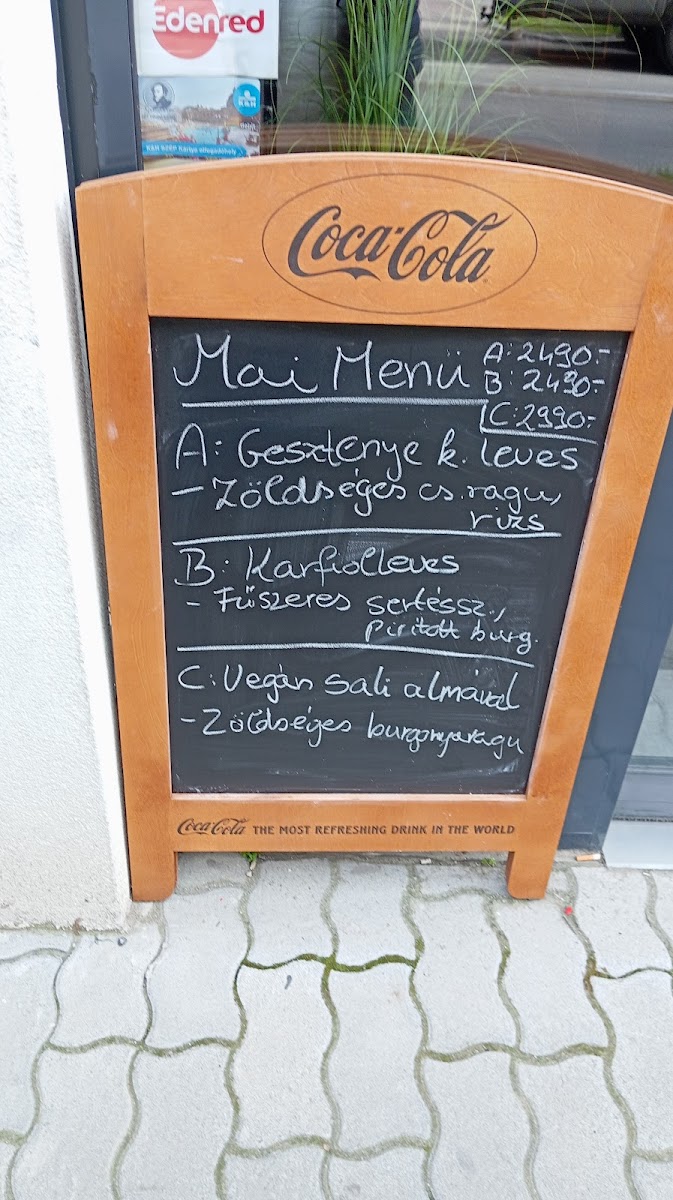 Edenred
K&H
K&H SZÉP Kártya elfogadóhely
Coca-Cola
Mai Menü
A: 2490.-
B: 2490.-
C: 2990.-
A: Gesztenye k. leves
- Zöldséges cs. ragu,
rizs
B: Karfiolleves
- Fűszeres sertéssz.,
pirított burg.
C: Vegán sali almával
- Zöldséges burgonyaragu
Coca-Cola THE MOST REFRESHING DRINK IN THE WORLD